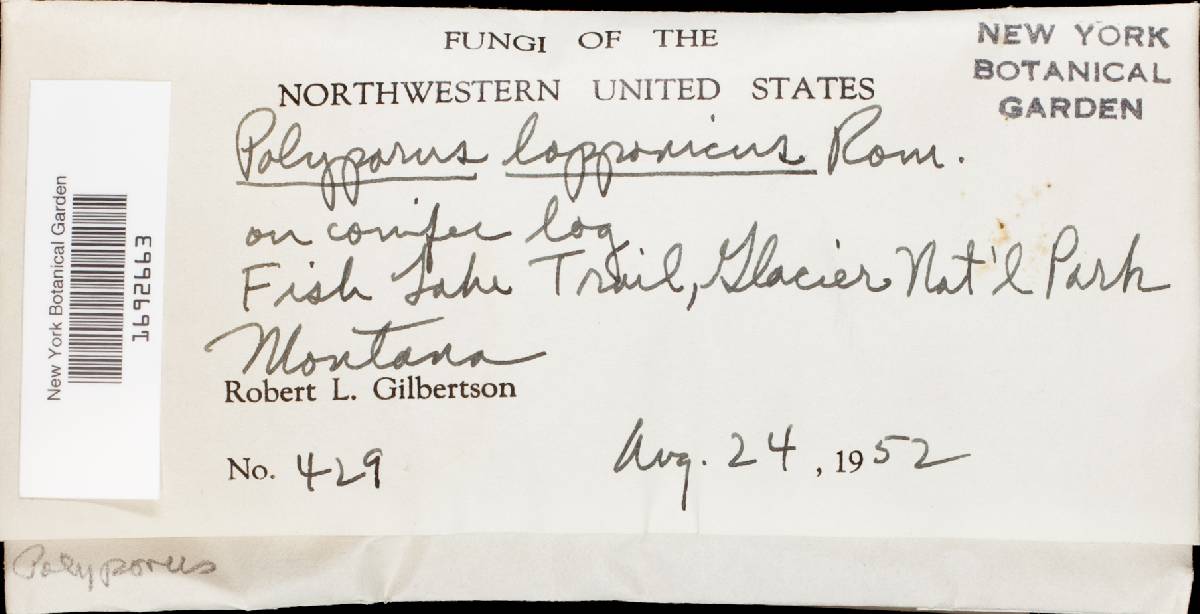 FUNGI OF THE
NORTHWESTERN UNITED STATES
NEW YORK
BOTANICAL
GARDEN
Polyporus lapponicus Rom.
on conifer log
Fish Lake Trail, Glacier Nat'l Park
Montana
Robert L. Gilbertson
No. 429
Aug. 24, 1952
New York Botanical Garden
1692663
Polyporus